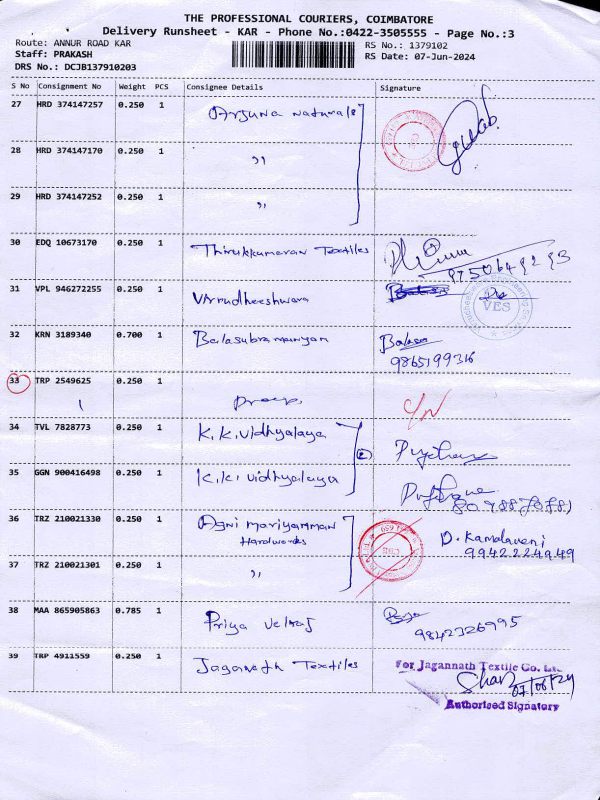 THE PROFESSIONAL COURIERS, COIMBATORE
Delivery Runsheet - KAR - Phone No.:0422-3505555 - Page No.:3
Route: ANNUR ROAD KAR
RS No.: 1379102
Staff: PRAKASH
RS Date: 07-Jun-2024
DRS No.: DCJB137910203
S No Consignment No Weight PCS Consignee Details Signature
27 HRD 374147257 0.250 1 Arjuna Naturals
28 HRD 374147170 0.250 1 ,,
29 HRD 374147252 0.250 1 ,,
30 EDQ 10673170 0.250 1 Thirukkumaran Textiles
31 VPL 946272255 0.250 1 VES
32 KRN 3189340 0.700 1 Balasubramaniyan
9865199316
33 TRP 2549625 0.250 1
34 TVL 7828773 0.250 1 K.K. Vidhyalaya
35 GGN 900416498 0.250 1 K.K. Vidhyalaya
36 TRZ 210021330 0.250 1 Agni Mariyamman D. Kamalaveni
Hardworks 9942224949
37 TRZ 210021301 0.250 1 ,,
38 MAA 865905863 0.785 1 Priya Velraj
9842326995
39 TRP 4911559 0.250 1 Jagannath Textiles For Jagannath Textile Co. Ltd.
07/06/24
Authorised Signatory